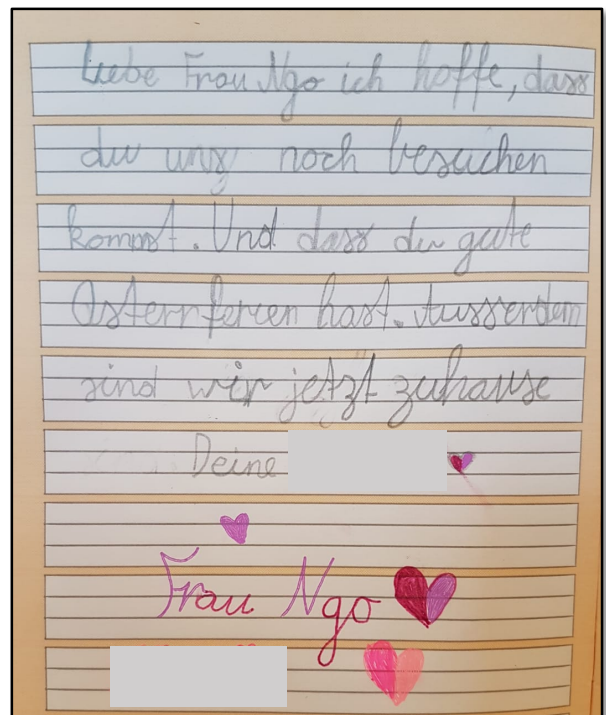 Liebe Frau Ngo ich hoffe, dass
du uns noch besuchen
kommst. Und dass du gute
Osternferien hast. Ausserdem
sind wir jetzt zuhause
Deine
Frau Ngo